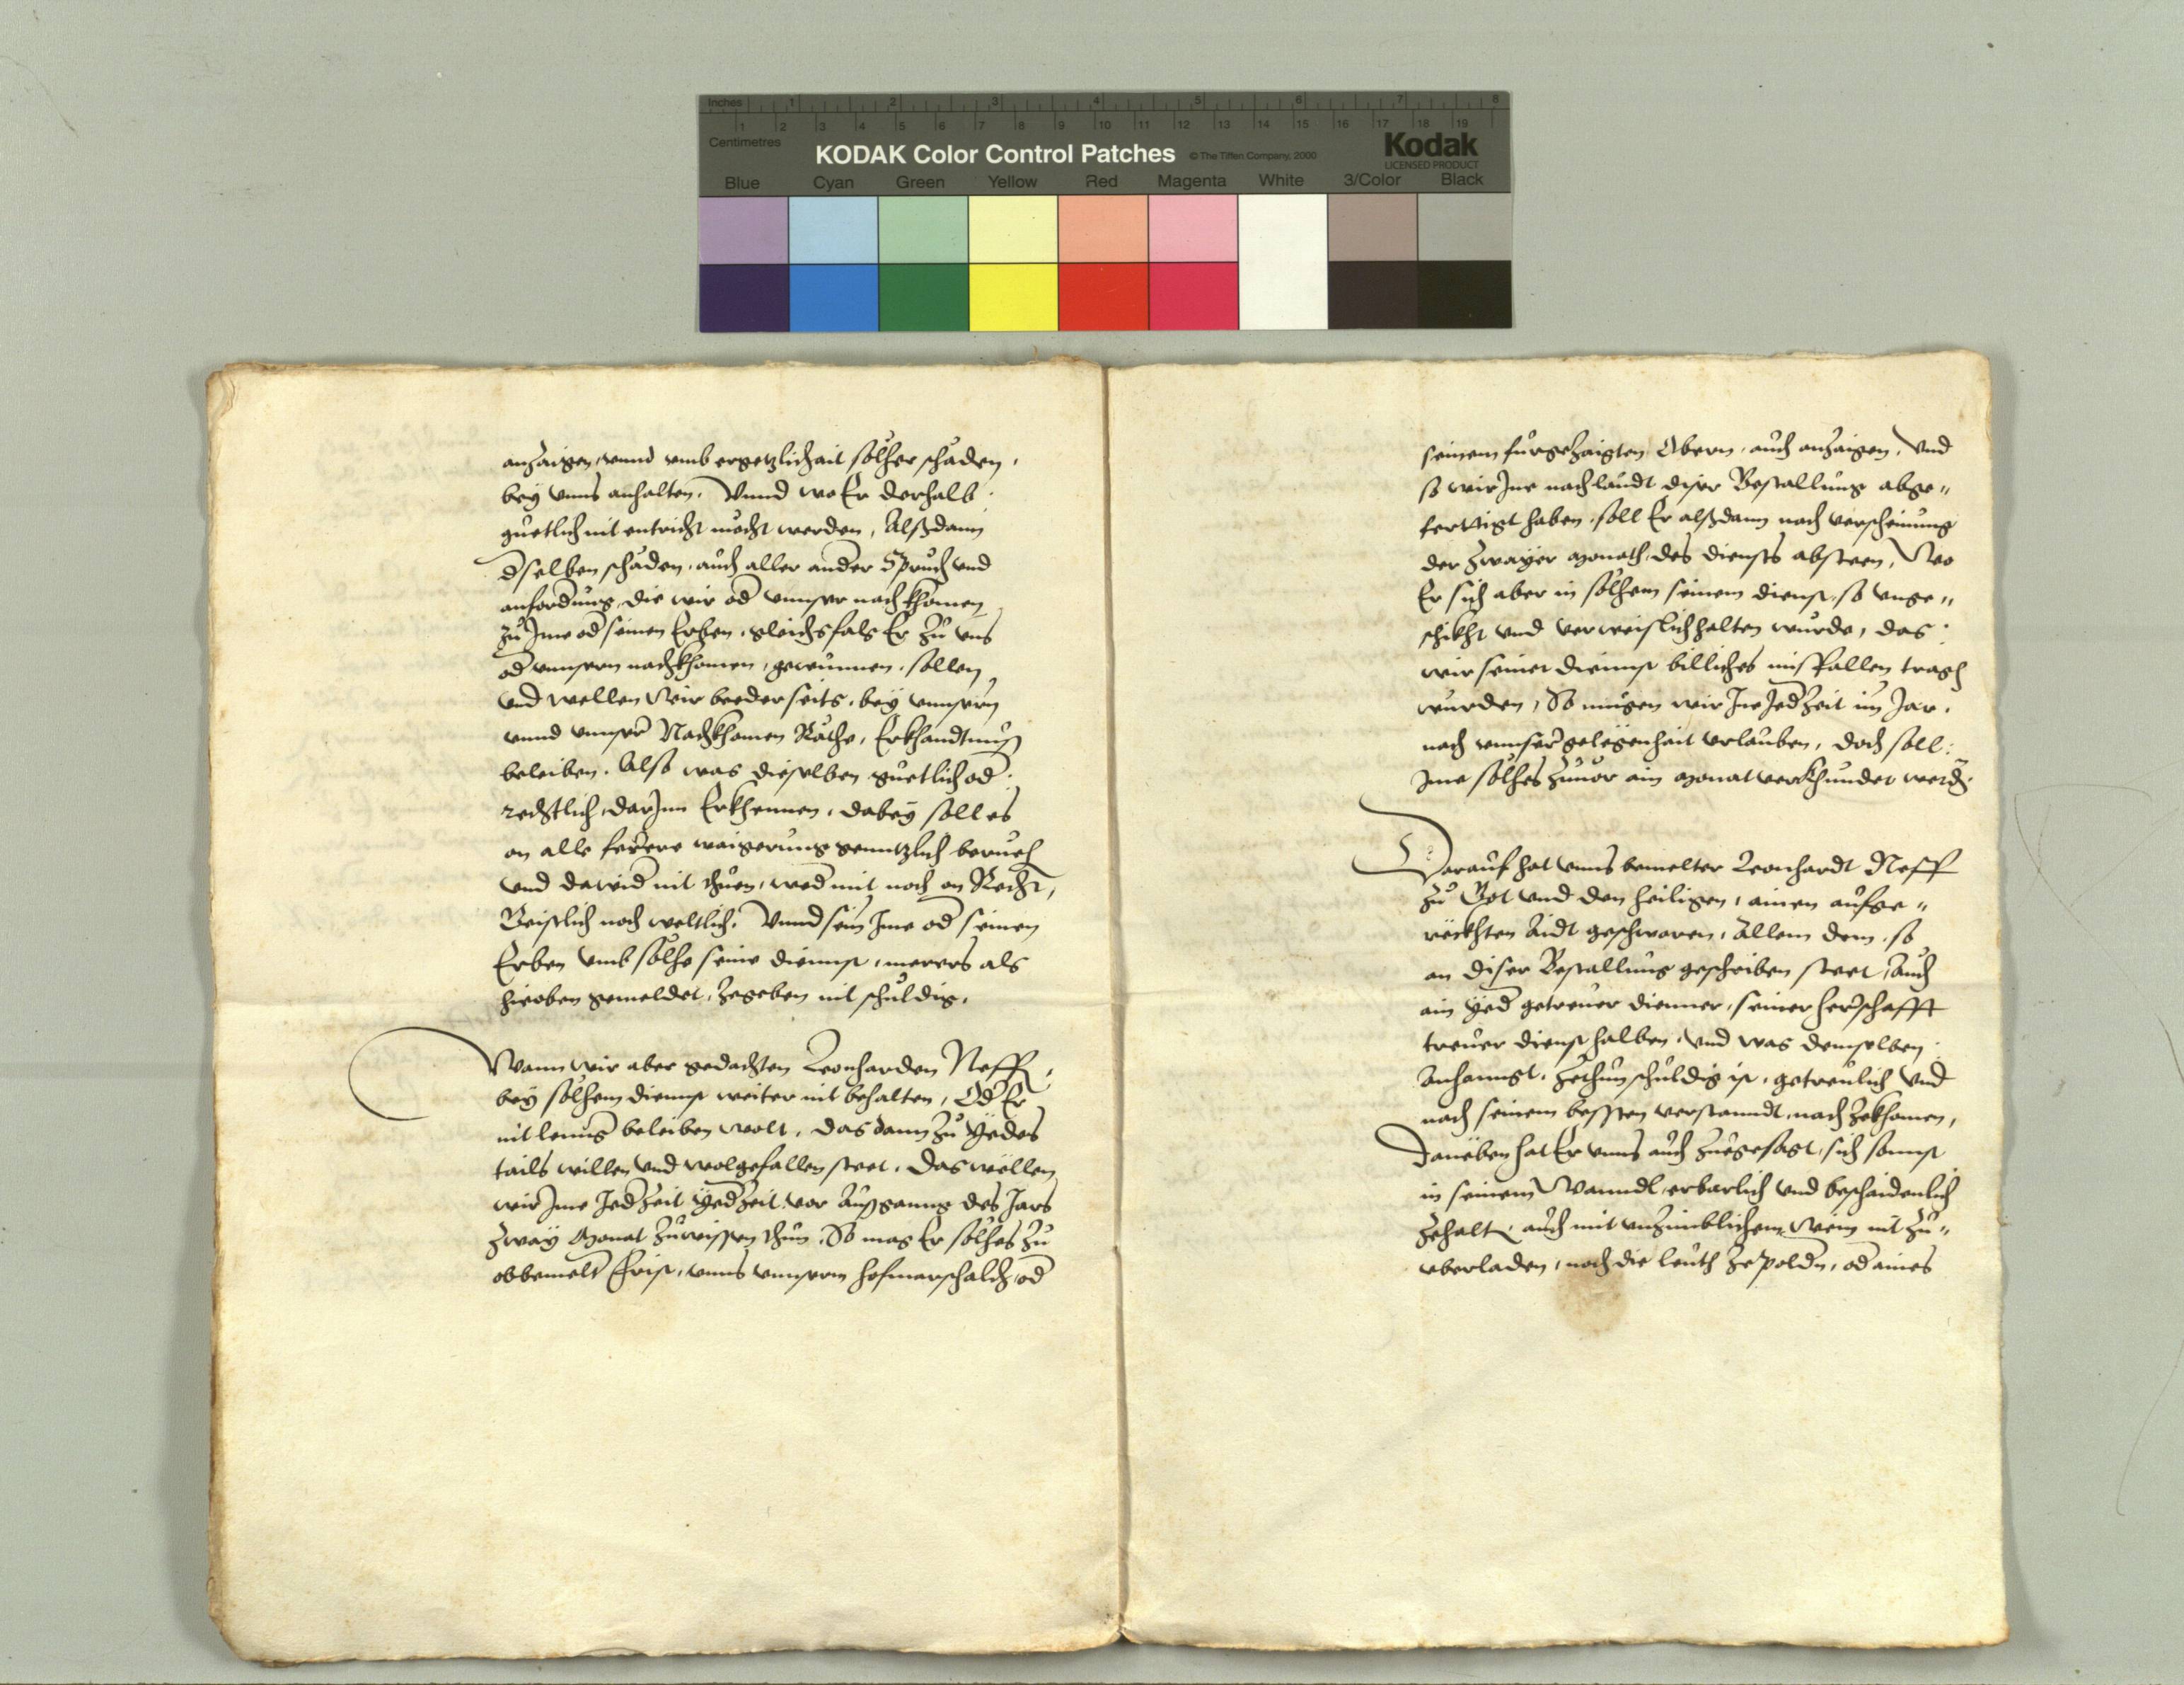 Inches 1 2 3 4 5 6 7 8
1 2 3 4 5 6 7 8 9 10 11 12 13 14 15 16 17 18 19
Centimetres
KODAK Color Control Patches © The Tiffen Company, 2000
Kodak
LICENSED PRODUCT
Blue Cyan Green Yellow Red Magenta White 3/Color Black
anzaigen, unnd umb ergetzlichait solher schaden,
bey unns anhalten. Unnd wo Er derhalb
guetlich nit entricht mocht werden, Alßdann
dselben schaden, auch aller ander Spruch und
anfordung, die wir od unnser nachkhomen
zu Jme od seinen Erben, gleichsfals Er zu uns
od unnsern nachkhomen, gewunnen, sollen
und wellen Wir beederseits, bey unnsern
unnd unnser Nachkhomen Räthe, Erkhandtnuß
beleiben. Also was dieselben guetlich od
rechtlich, darJnn Erkhennen, dabey soll es
on alle ferrere waigerung genntzlich berueh
und dawid nit thuen, wed mit noch on Recht,
Geistlich noch weltlich. Unnd sein Jme od seinen
Erben umb solhe seine diennst, merers als
hieoben gemeldet, zegeben nit schuldig.
Wann wir aber gedachten Leonharden Neff,
bey solhem diennst weiter nit behalten, Od Er
nit lenng beleiben wolt, das dann zu Yedes
tails willen und wolgefallen steet, Das wellen
wir Jme Jedzeit Yedzeit vor Außganng des Jars
zway Monat zuwissen thun, So mag Er solhes zu
obbemelt Frist, unns unnserm hofmarschalch, od
seinem furgezaigten Obern, auch anzaigen, Und
so wir Jne nach laudt diser Bestallung abge„
ferttigt haben, soll Er alßdann nach verscheinung
der zwayer Monath, des diensts absteen, Wo
Er sich aber in solhem seinem dienst, so unge„
schikht und verweislich halten wurde, das
wir seiner diennst billiches misfallen tragen
wurden, So mugen wir Jne Jedzeit im Jar,
nach unnser gelegenhait urlauben, doch soll
Jme solhes zuuor ain Monat verkhundet werd.
Darauf hat unns bemelter Leonhardt Neff
zu Got und den heiligen, ainen aufge„
reckhten Aidt geschworen, Allem dem, so
an diser Bestallung geschriben steet, Auch
ain Yed getreuer diennner, seiner herschafft
treuer dienst halben, und was demselben
Anhanngt, zethun schuldig ist, getreulich und
nach seinem bessten verstanndt, nachzekhomen,
Daneben hat Er unns auch zuegesagt, sich sonnst
in seinem Wanndl, erbarlich und beschaidenlich
zehalt, auch mit unzimblichem Wein nit zu„
uberladen, noch die leuth zepoldn, od aines